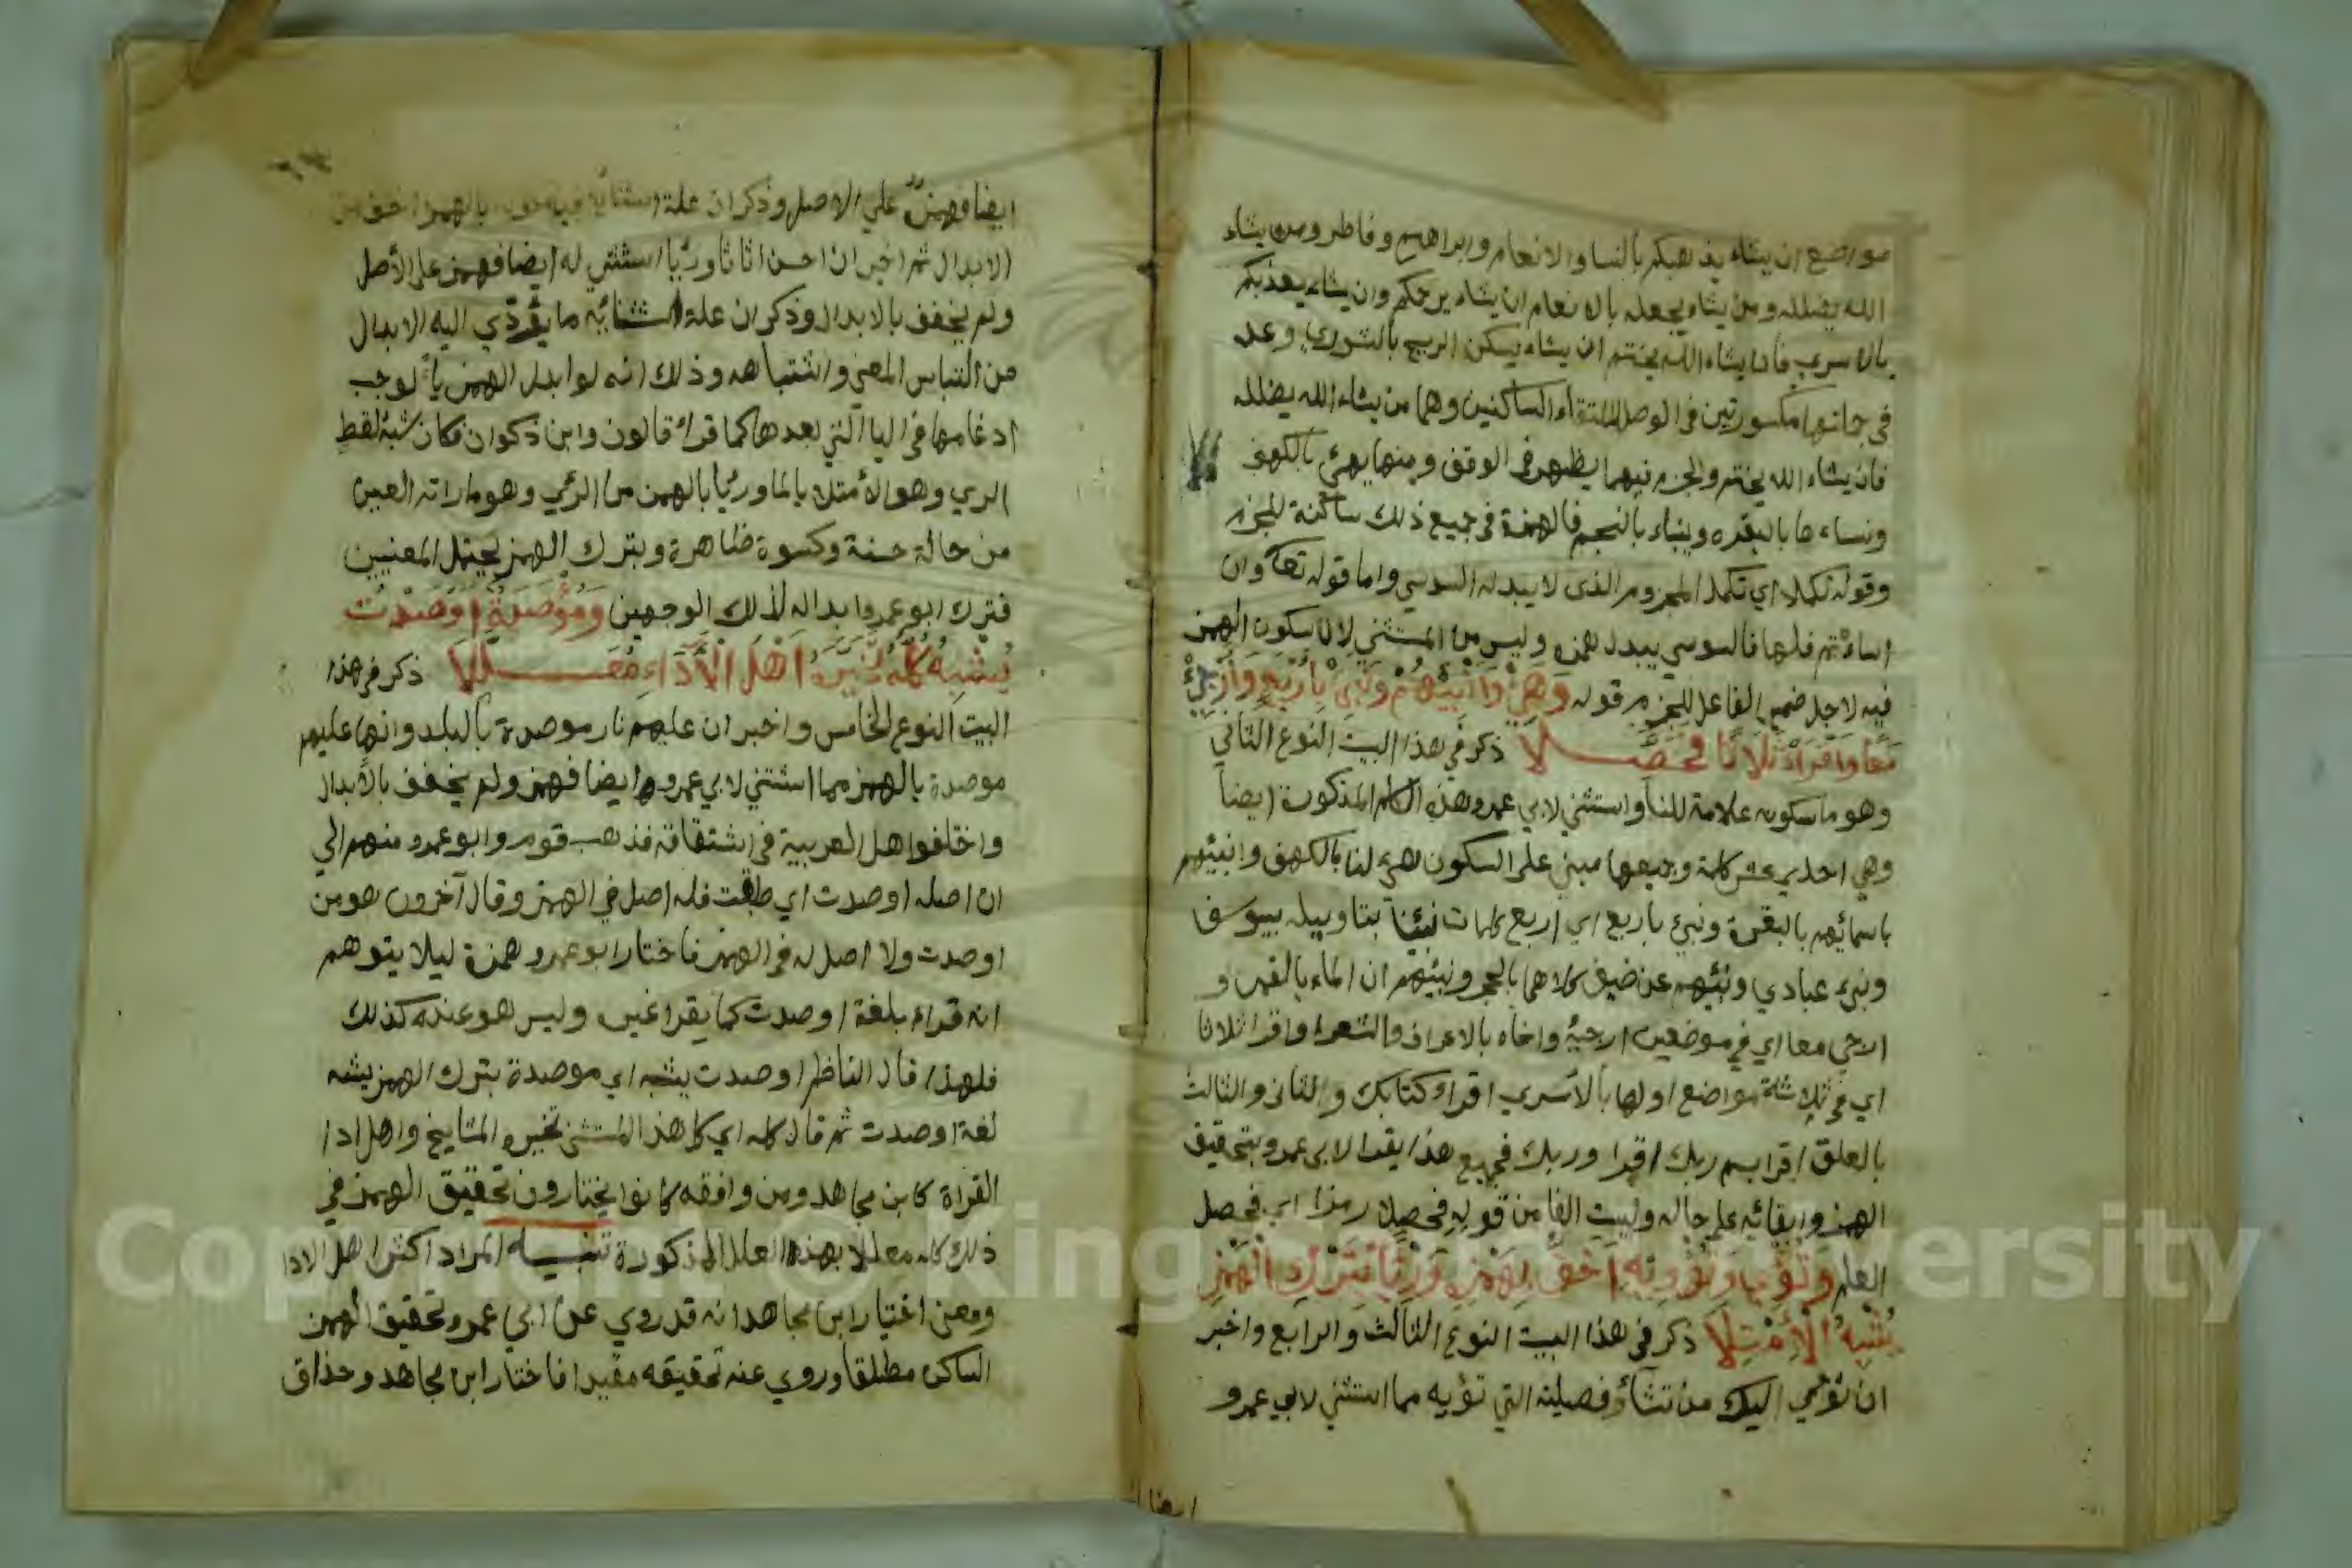 مواضع ان يشاء يذهبكم بالنسا والانعام وابراهيم وفاطر ومن يشاء
الله يضلله ومن يشاء يجعله بالانعام ان يشاء يرحمكم وان يشاء يعذبكم
بالاسري فان يشاء الله يختم ان يشاء يسكن الريح بالشوري وعد
في حالتها مكسورتين في الوصل لالتقاء الساكنين وهما من يشاء الله يضلله
فان يشاء الله يختم والجزم فيهما يظهر في الوقف ومنها يهئ بالكهف
وننساءها بالبقره وينباء بالنجم فالهمزة في جميع ذلك ساكنة للجزم
وقوله تكملا اي تكمل المجزوم الذي لا يبدله السوسي واما قوله تعا وان
اساءتم فلها فالسوسي يبدل همزه وليس من المستثني لان سكون الهمز
فيه لاجل ضمير الفاعل للجزم قوله وَهَيِّئْ وَاَنْبِئْهُمْ وَنَبِّئْ بِاَرْبَعٍ وَاَرْجِئْ
مَعًا وَاقْرَاْ ثَلَاثًا فَحَصِّلَا ذكر في هذا البيت النوع الثاني
وهو ما سكونه علامة للبنا واستثني لابي عمرو هذه الكلم المذكورة ايضا
وهي احدي عشر كلمة وجميعها مبني على السكون هيئ لنا بالكهف وانبئهم
باسمائهم بالبقرة ونبئ باربع اي اربع كلمات نبئنا بتاويله بيوسف
ونبئ عبادي ونبئهم عن ضيف كلاهما بالحجر ونبئهم ان الماء بالقمر و
ارجئ معا اي في موضعين ارجئه واخاه بالاعراف والشعرا واقرا ثلاثا
اي في ثلاثة مواضع اولها بالاسري اقراء كتابك والثاني والثالث
بالعلق اقرا بسم ربك اقرا وربك فجميع هذا يقرا لابي عمرو بتحقيق
الهمز وابقائه على حاله وليست الفا من قوله فحصلا رمزا اي فحصل
العلم وَتُؤْوِي وَتُؤْوِيهِ اَخَفُّ بِهَمْزِهِ وَرِئْيًا بِتَرْكِ الْهَمْزِ
يُشْبِهُ الْاِمْتِلَا ذكر في هذا البيت النوع الثالث والرابع واخبر
ان تؤوي اليك من تشاء وفصيلته التي تؤيه مما استثني لابي عمرو
ايضا
ايضا فهمز على الاصل وذكر ان علة استثنائه بالهمز اخف من
الابدال ثم اخبر ان احسن اثاثا ورئيا استثني له ايضا فهمز على الأصل
ولم يخفف بالابدال وذكر ان علة استثنائه ما يؤدي اليه الابدال
من التباس المعني واشتباهه وذلك انه لو ابدل الهمز ياً لوجب
ادغامها في اليا التي بعدها كما قراء قالون وابن ذكوان فكان شبه لفظ
الري وهو الأمتلا بالما ورئيا بالهمز من الرئي وهو ما راته العين
من حالة حسنة وكسوة ظاهرة وبترك الهمز يحتمل المعنيين
فترك ابوعمرو ابداله لذلك الوجهين وَمُؤْصَدَةٌ اَوْصَدْتُ
يُشْبِهُ كُلُّهُ تَخَيَّرَهُ اَهْلُ الْاَدَاءِ مُعَلَّلَا ذكر في هذا
البيت النوع الخامس واخبر ان عليهم نار موصدة بالبلد وانها عليهم
موصدة بالهمزة مما استثني لابي عمرو ايضا فهمز ولم يخفف بالأبدال
واختلفوا اهل العربية في اشتقاقة فذهب قوم وابوعمرو منهم الي
ان اصله اوصدت اي طبقت فله اصل في الهمز وقال آخرون هو من
اوصدت ولا اصل له في الهمز فاختار ابوعمرو همزة ليلا يتوهم
انه قراء بلغة اوصدت كما يقرا غيره وليس هو عنده كذلك
فلهذا قال الناظم اوصدت يشبه اي موصدة بترك الهمز يشبه
لغة اوصدت ثم قال كله اي كل هذا المستثني تخيره المشايخ واهل ادا
القراة كابن مجاهد ومن وافقه كانوا يختارون تحقيق الهمز في
ذلك كله معللا بهذه العلل المذكورة تنبيه المراد اكثر اهل الادا
ومعني اختيار ابن مجاهد انه قد روي عن ابي عمرو تحقيق الهمز
الساكن مطلقا وروي عنه تحقيقه مقيدا فاختار ابن مجاهد وحذاق
Copyright © King Saud University